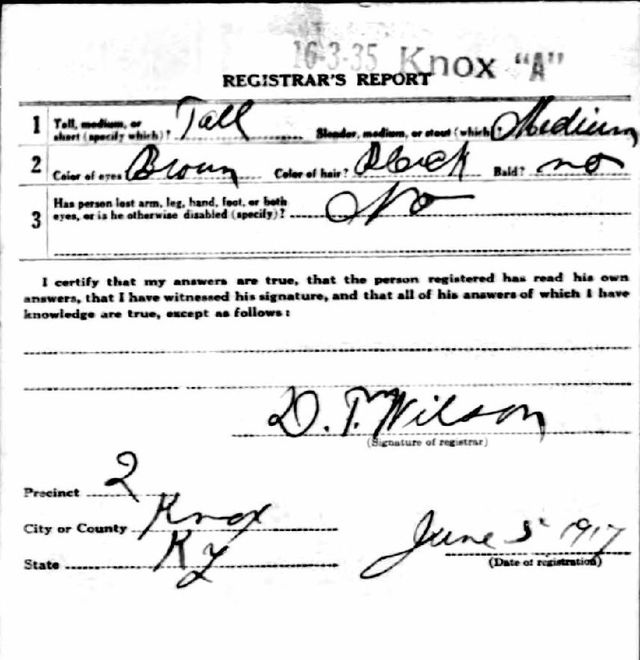 16-3-35 Knox "A"
REGISTRAR'S REPORT
1 Tall, medium, or short (specify which)? Tall Slender, medium, or stout (which)? Medium
2 Color of eyes Brown Color of hair? Black Bald? no
3 Has person lost arm, leg, hand, foot, or both eyes, or is he otherwise disabled (specify)? No
I certify that my answers are true, that the person registered has read his own
answers, that I have witnessed his signature, and that all of his answers of which I have
knowledge are true, except as follows:
D. T. Wilson
(Signature of registrar)
Precinct 2
City or County Knox
State Ky
June 5 1917
(Date of registration)